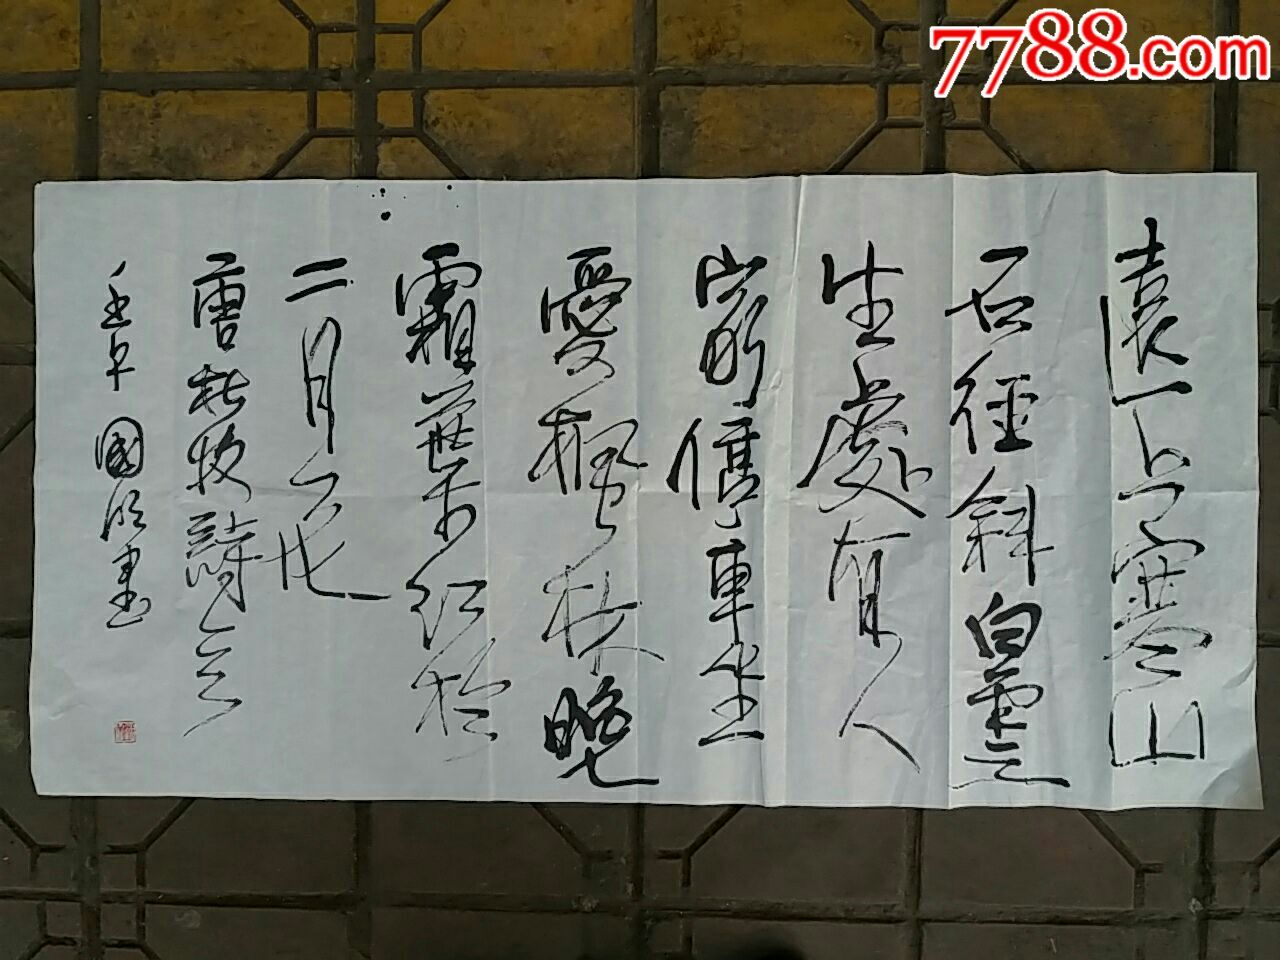 7788.com
遠上寒山
石徑斜白雲
生處有人
家停車坐
愛楓林晚
霜葉紅於
二月花
唐杜牧詩
國 書